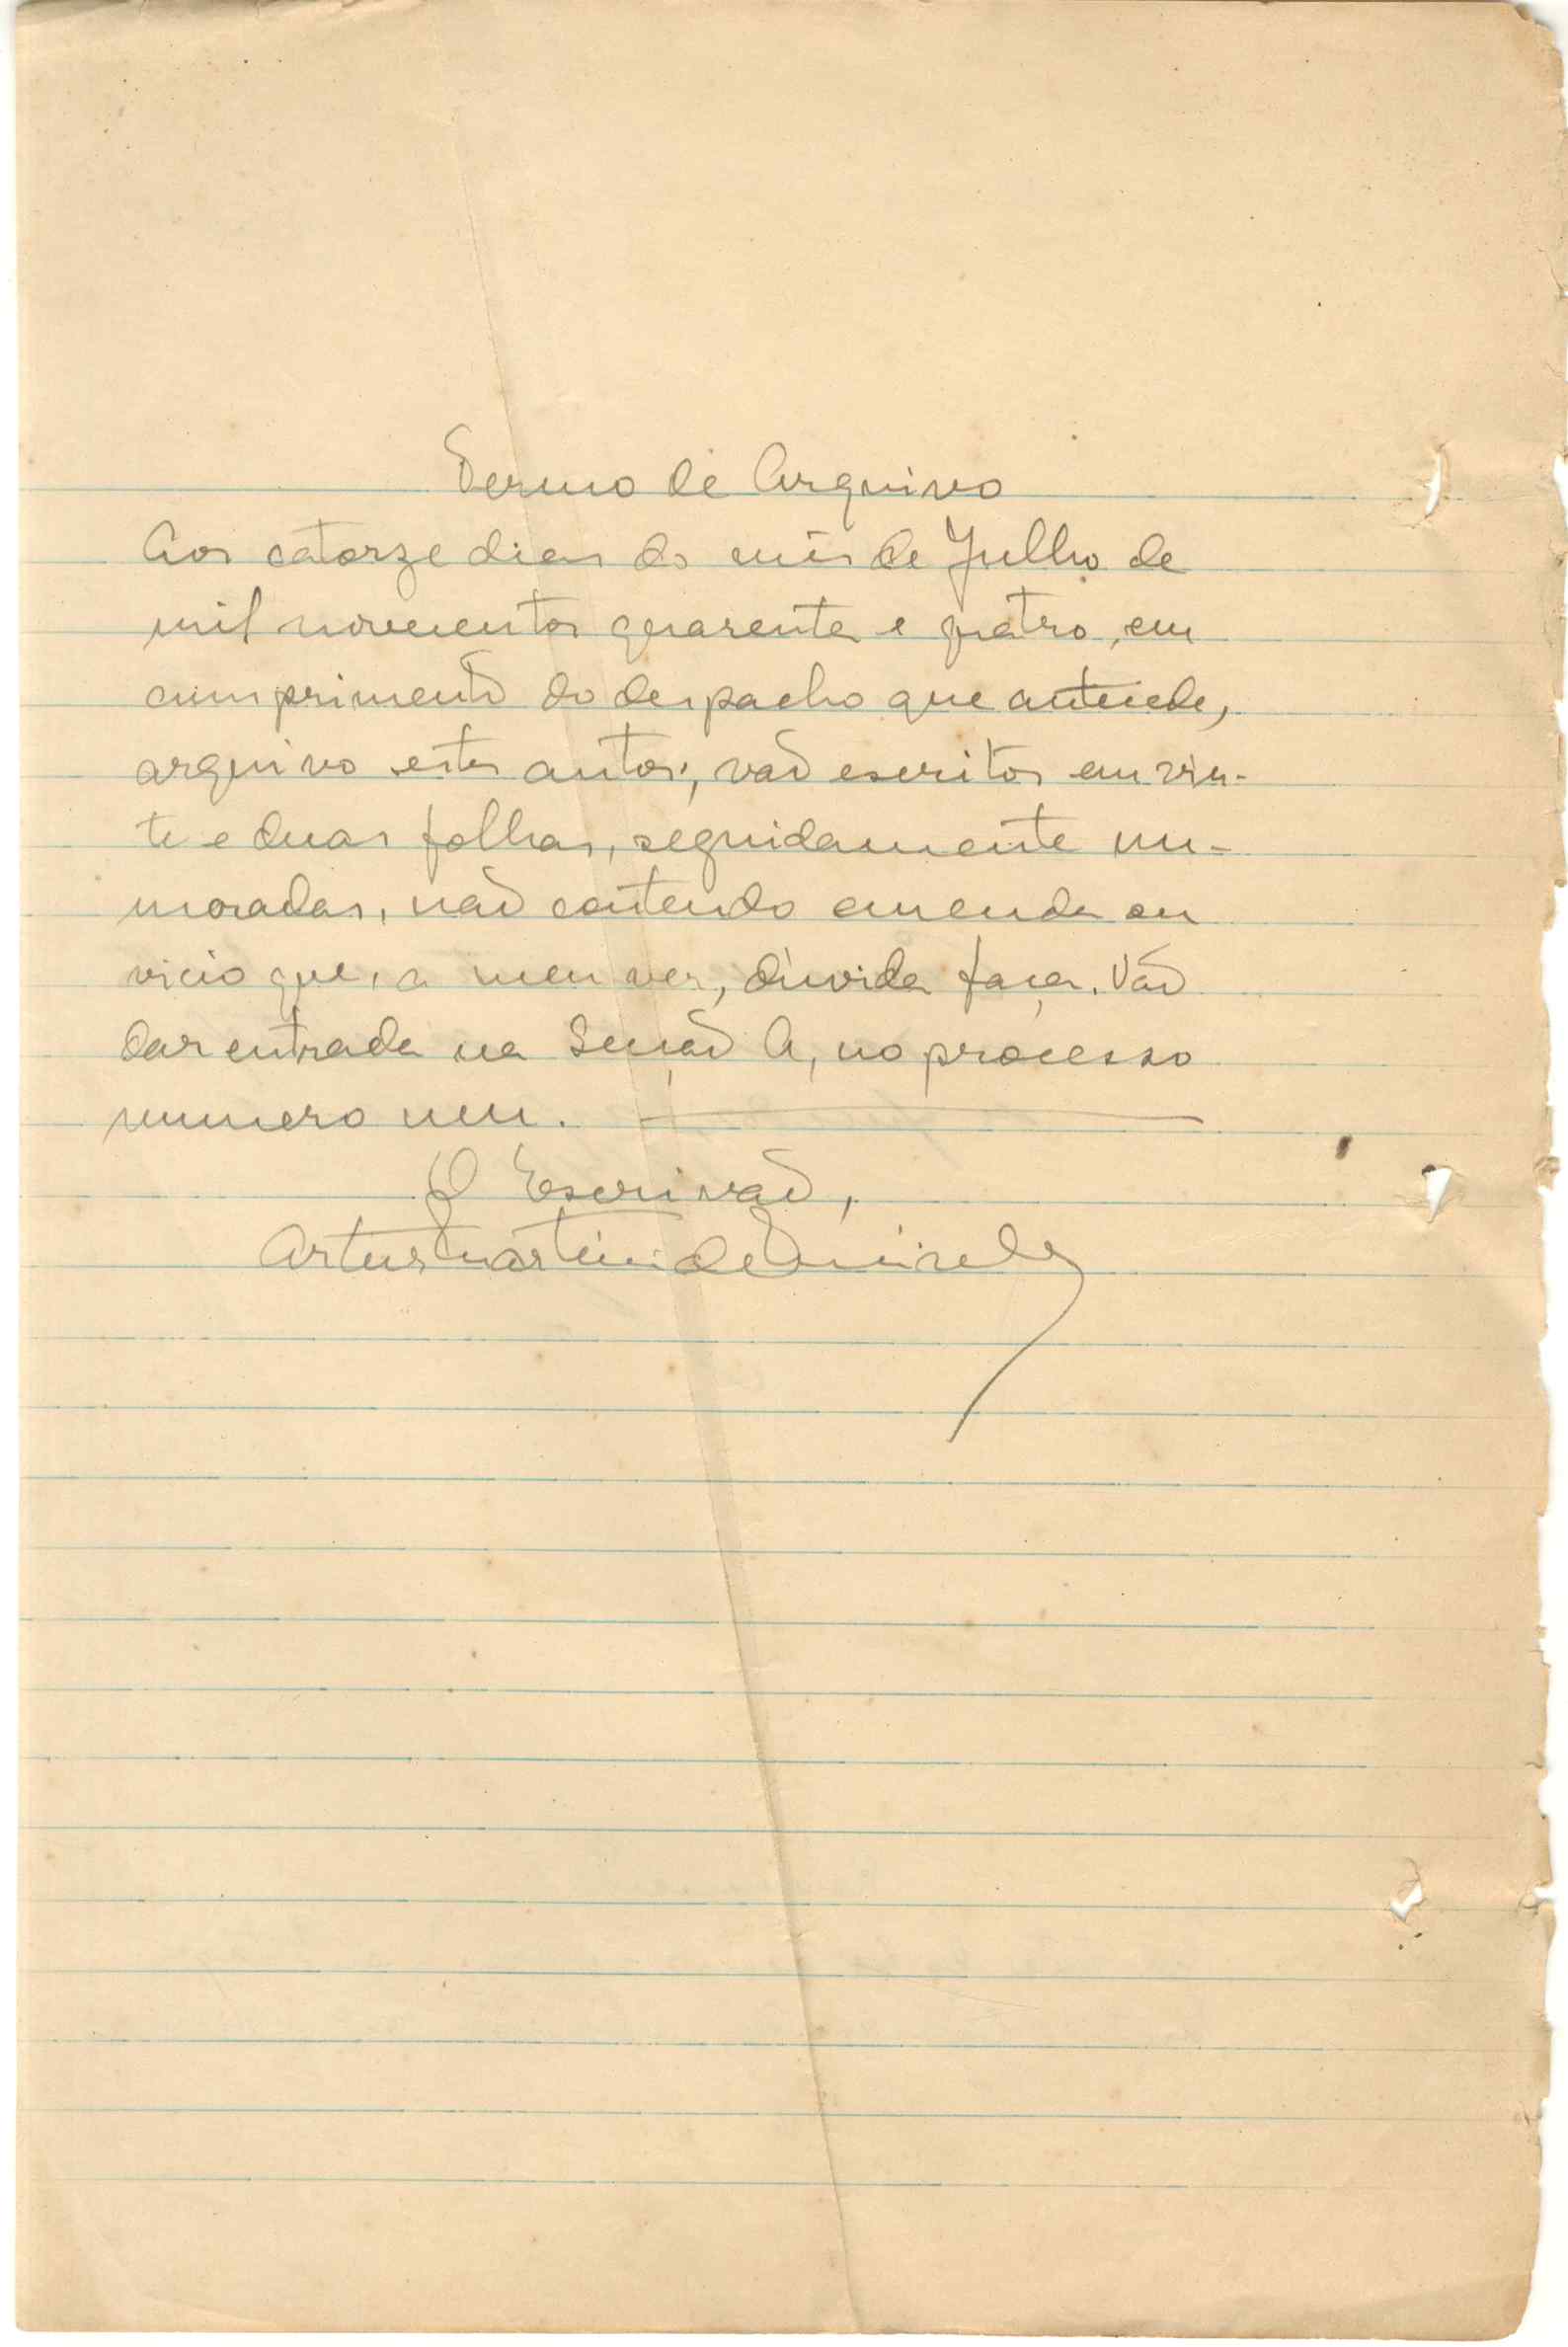 Termo de Arquivo
Aos catorze dias do mês de Julho de
mil novecentos quarenta e quatro, em
cumprimento do despacho que antecede,
arquivo estes autos; vão escritos em vin-
te e duas folhas, seguidamente nu-
meradas, não contendo emenda ou
vicio que, a meu ver, dúvida faça. Vão
dar entrada na Secção A, no processo
numero um.
O Escrivão,
Artur Martins de